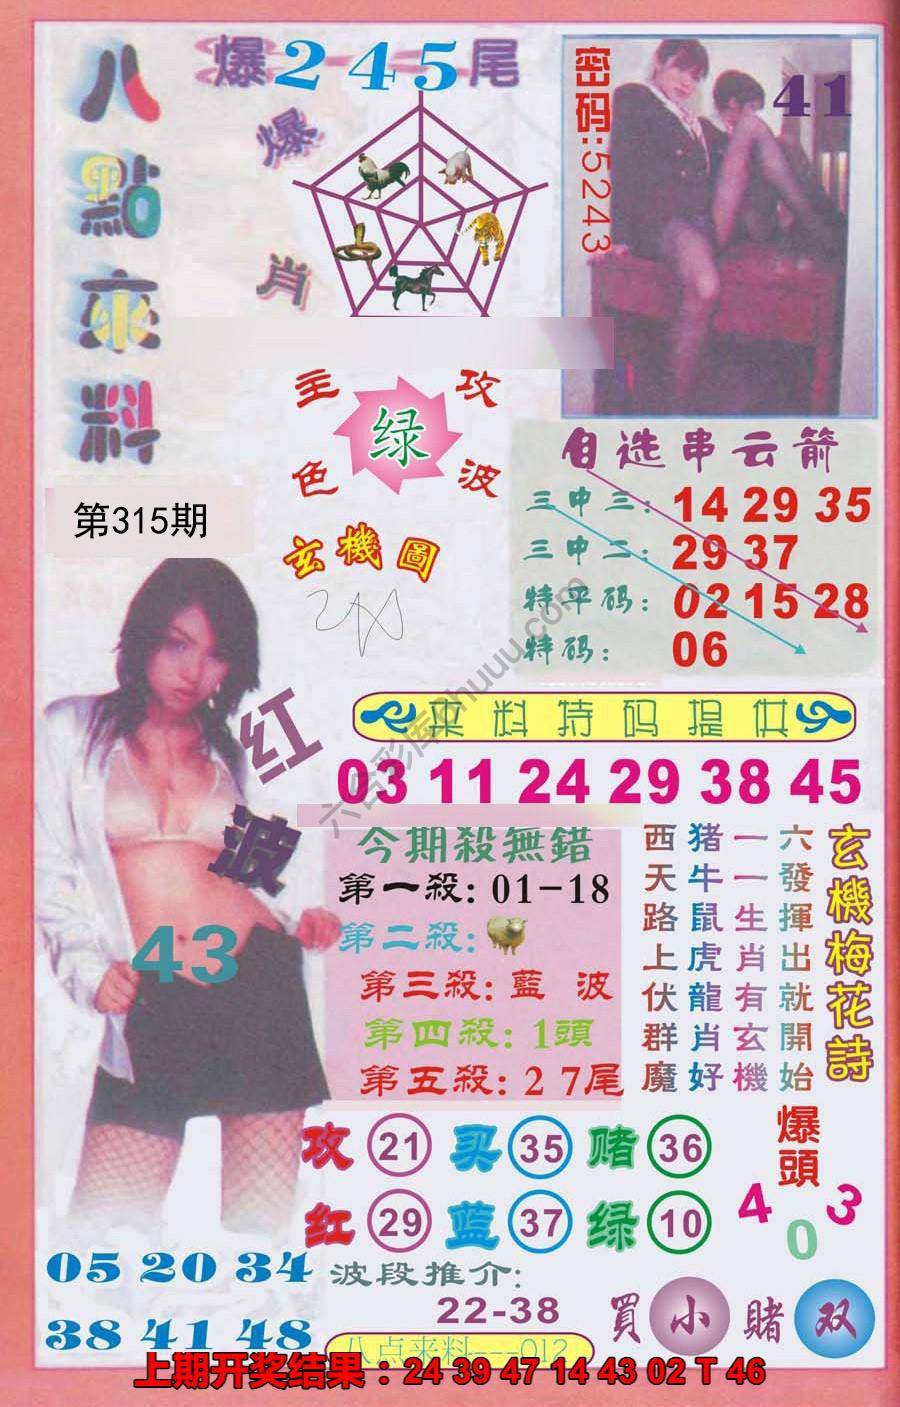 八點來料
爆245尾
爆肖
密码:5243
41
主攻
绿
色波
第315期
玄機圖
自选串云箭
三中三: 14 29 35
三中二: 29 37
特平码: 02 15 28
特码: 06
六合彩库6huuu.com
来料特码提供
03 11 24 29 38 45
红波
43
今期殺無錯
第一殺: 01-18
第二殺:
第三殺: 藍 波
第四殺: 1頭
第五殺: 2 7尾
玄機梅花詩
六發揮出就開始
一一生肖有玄機
猪牛鼠虎龍肖好
西天路上伏群魔
攻 21 买 35 赌 36
红 29 蓝 37 绿 10
爆頭
4 0 3
05 20 34
38 41 48
波段推介:
22-38
買 小 赌 双
八点来料---012
上期开奖结果：24 39 47 14 43 02 T 46